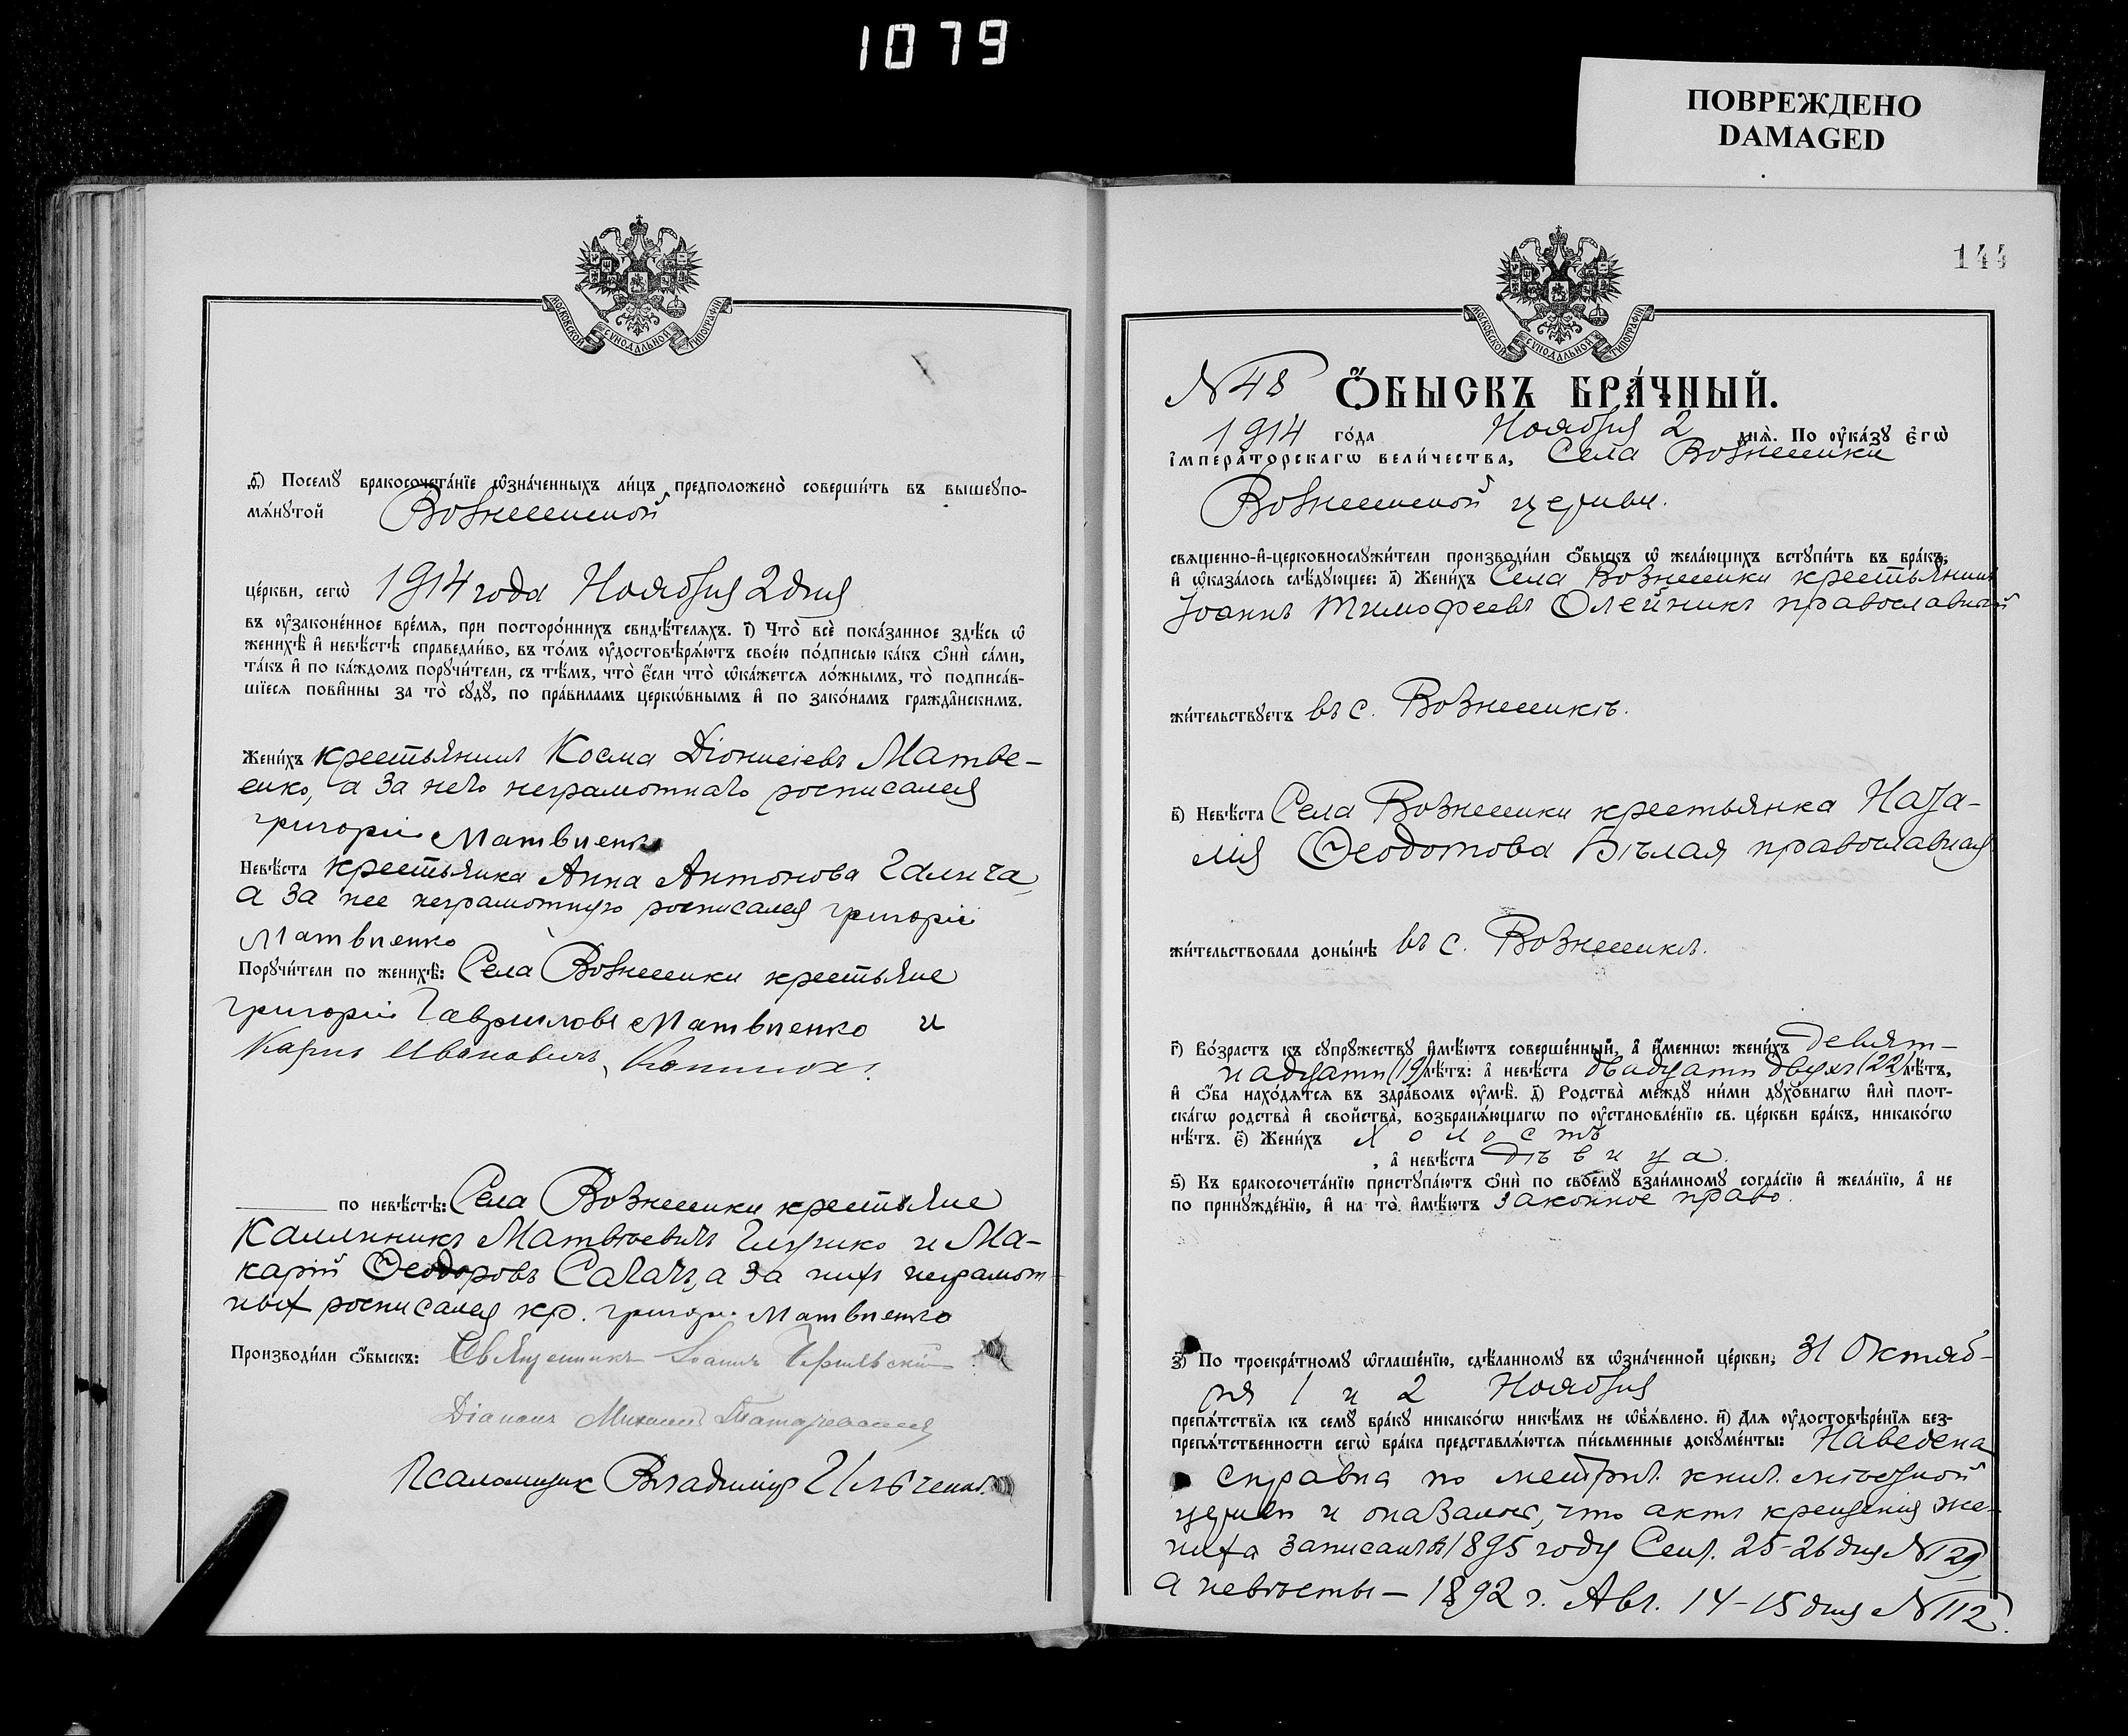 1079
ПОВРЕЖДЕНО
DAMAGED
МОСКОВСКОЙ СѴНОДАЛЬНОЙ ТИПОГРАФІИ
з҃) Посемꙋ бракосочета́нїе ѡ҆зна́ченныхъ ли́цъ предположено̀ соверши́ть въ вышеꙋпо-
мѧ́нꙋтой Вознесенской
це́ркви, сегѡ̀ 1914 года Ноября 2 дня
въ ᲂу҆законе́нное вре́мѧ, при посторо́ннихъ свидѣ́телѧхъ. і҃) Что̀ всѐ пока́занное здѣ́сь ѡ҆
женихѣ̀ и҆ невѣ́стѣ справедли́во, въ то́мъ ᲂу҆достовѣрѧ́ютъ свое́ю по́дписью ка́къ ѻ҆нѝ са́ми,
та́къ и҆ по ка́ждомъ порꙋчи́тели, съ тѣ́мъ, что̀ є҆́сли что̀ ѡ҆ка́жетсѧ ло́жнымъ, то̀ подписа́в-
шїесѧ пови́нны за то̀ сꙋдꙋ̀, по пра́виламъ церко́внымъ и҆ по зако́намъ гражда́нскимъ.
Жени́хъ крестьянинъ Косма Діонисіевъ Матве-
енко, а за него неграмотнаго росписался
григорій Матвиенко
Невѣ́ста крестьянка Анна Антонова Галича,
а за нее неграмотную росписался григорій
Матвиенко
Порꙋчи́тели по женихѣ̀: Села Вознесенки крестьяне
григорій Гавриловъ Матвиенко и
Карпъ Ивановичъ
по невѣ́стѣ: Села Вознесенки крестьяне
Калинникъ Матвѣевичъ и Ма-
карій Ѳеодоровъ а за нихъ неграмот-
ныхъ росписался кр. григорі Матвиенко
Производи́ли ѻ҆́быскъ: Священникъ Іоаннъ
Діаконъ Михаилъ
Псаломщик Владимір Ильченко.
144
МОСКОВСКОЙ СѴНОДАЛЬНОЙ ТИПОГРАФІИ
N 48 Ѻ҆́БЫСКЪ БРА́ЧНЫЙ.
1914 го́да Ноября 2 днѧ̀. По ᲂу҆ка́зꙋ є҆гѡ̀
і҆мпера́торскагѡ вели́чества, Села Вознесенки
Вознесенской церкви.
свѧщенно-и҆-церковнослꙋжи́тели производи́ли ѻ҆́быскъ ѡ҆ жела́ющихъ встꙋпи́ть въ бра́къ,
и҆ ѡ҆каза́лось слѣ́дꙋющее: а҃) Жени́хъ Села Вознесенки крестьянинъ
Іоаннъ Тимофеевъ Олейникъ православный
жи́тельствꙋетъ въ с. Вознесенкѣ.
в҃) Невѣ́ста Села Вознесенки крестьянка Ната-
лія Ѳеодотова Бѣлая православная
жи́тельствовала доны́нѣ въ с. Вознесенкѣ.
г҃) Во́зрастъ къ сꙋпрꙋ́жествꙋ и҆мѣ́ютъ соверше́нный, а҆ и҆́менно: жени́хъ девят-
надцати (19) лѣ́тъ: а҆ невѣ́ста двадцати двухъ (22) лѣ́тъ,
и҆ ѻ҆́ба нахо́дѧтсѧ въ здра́вомъ ᲂу҆мѣ̀. д҃) Родства̀ междꙋ ни́ми дꙋхо́внагѡ и҆лѝ плот-
ска́гѡ родства̀ и҆ сво́йства, возбранѧ́ющагѡ по ᲂу҆становле́нїю св. це́ркви бра́къ, никако́гѡ
нѣ́тъ. є҃) Жени́хъ Холостъ
, а҆ невѣ́ста Дѣвица.
ѕ҃) Къ бракосочета́нїю пристꙋпа́ютъ ѻ҆нѝ по своемꙋ̀ взаи́мномꙋ согла́сїю и҆ жела́нїю, а҆ не
по принꙋжде́нїю, и҆ на то̀ и҆мѣ́ютъ законное право.
з҃) По троекра́тномꙋ ѡ҆глаше́нїю, сдѣ́ланномꙋ въ ѡ҆зна́ченной це́ркви, 31 Октяб-
ря 1 и 2 Ноября
препѧ́тствїѧ къ семꙋ̀ бра́кꙋ никако́гѡ никѣ́мъ не ѡ҆бъѧ́влено. и҃) Длѧ ᲂу҆достовѣре́нїѧ без-
препѧ́тственности сегѡ̀ бра́ка представлѧ́ютсѧ пи́сьменные докꙋме́нты: Наведена
справка по метрич. книг. мѣстной
церкви и оказалось, что актъ крещенія же-
ниха записанъ въ 1895 году Сент. 25-26 дня N 129
а невѣсты — 1892 г. Авг. 14-15 дня N 112.